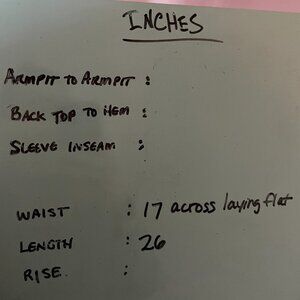 INCHES
ARMPIT TO ARMPIT :
BACK TOP TO HEM :
SLEEVE INSEAM :
WAIST : 17 across laying flat
LENGTH : 26
RISE :